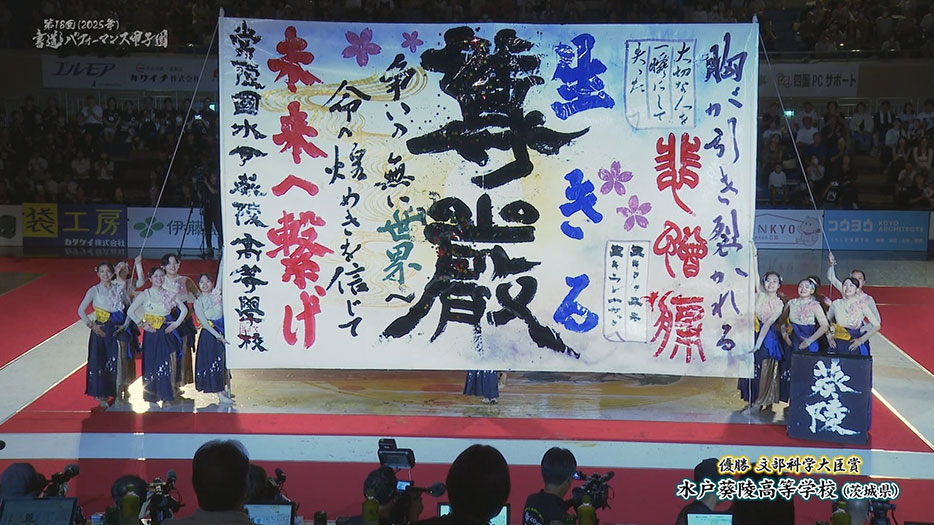 第18回(2025年)
書道パフォーマンス甲子園
エルモア
カワイチ株式会社
四国PCサポート
胸が引き裂かれる
悲憎痛
大切な人を
一瞬にして
失った
生きる
尊厳
争いの無い世界へ
命の煌めきを信じて
未来へ繋げ
常陸國水戸葵陵高等學校
袋工房
カタケイ株式会社
伊藤
コウヨウ
KOYO
ARCHITECTS
葵陵
優勝 文部科学大臣賞
水戸葵陵高等学校(茨城県)